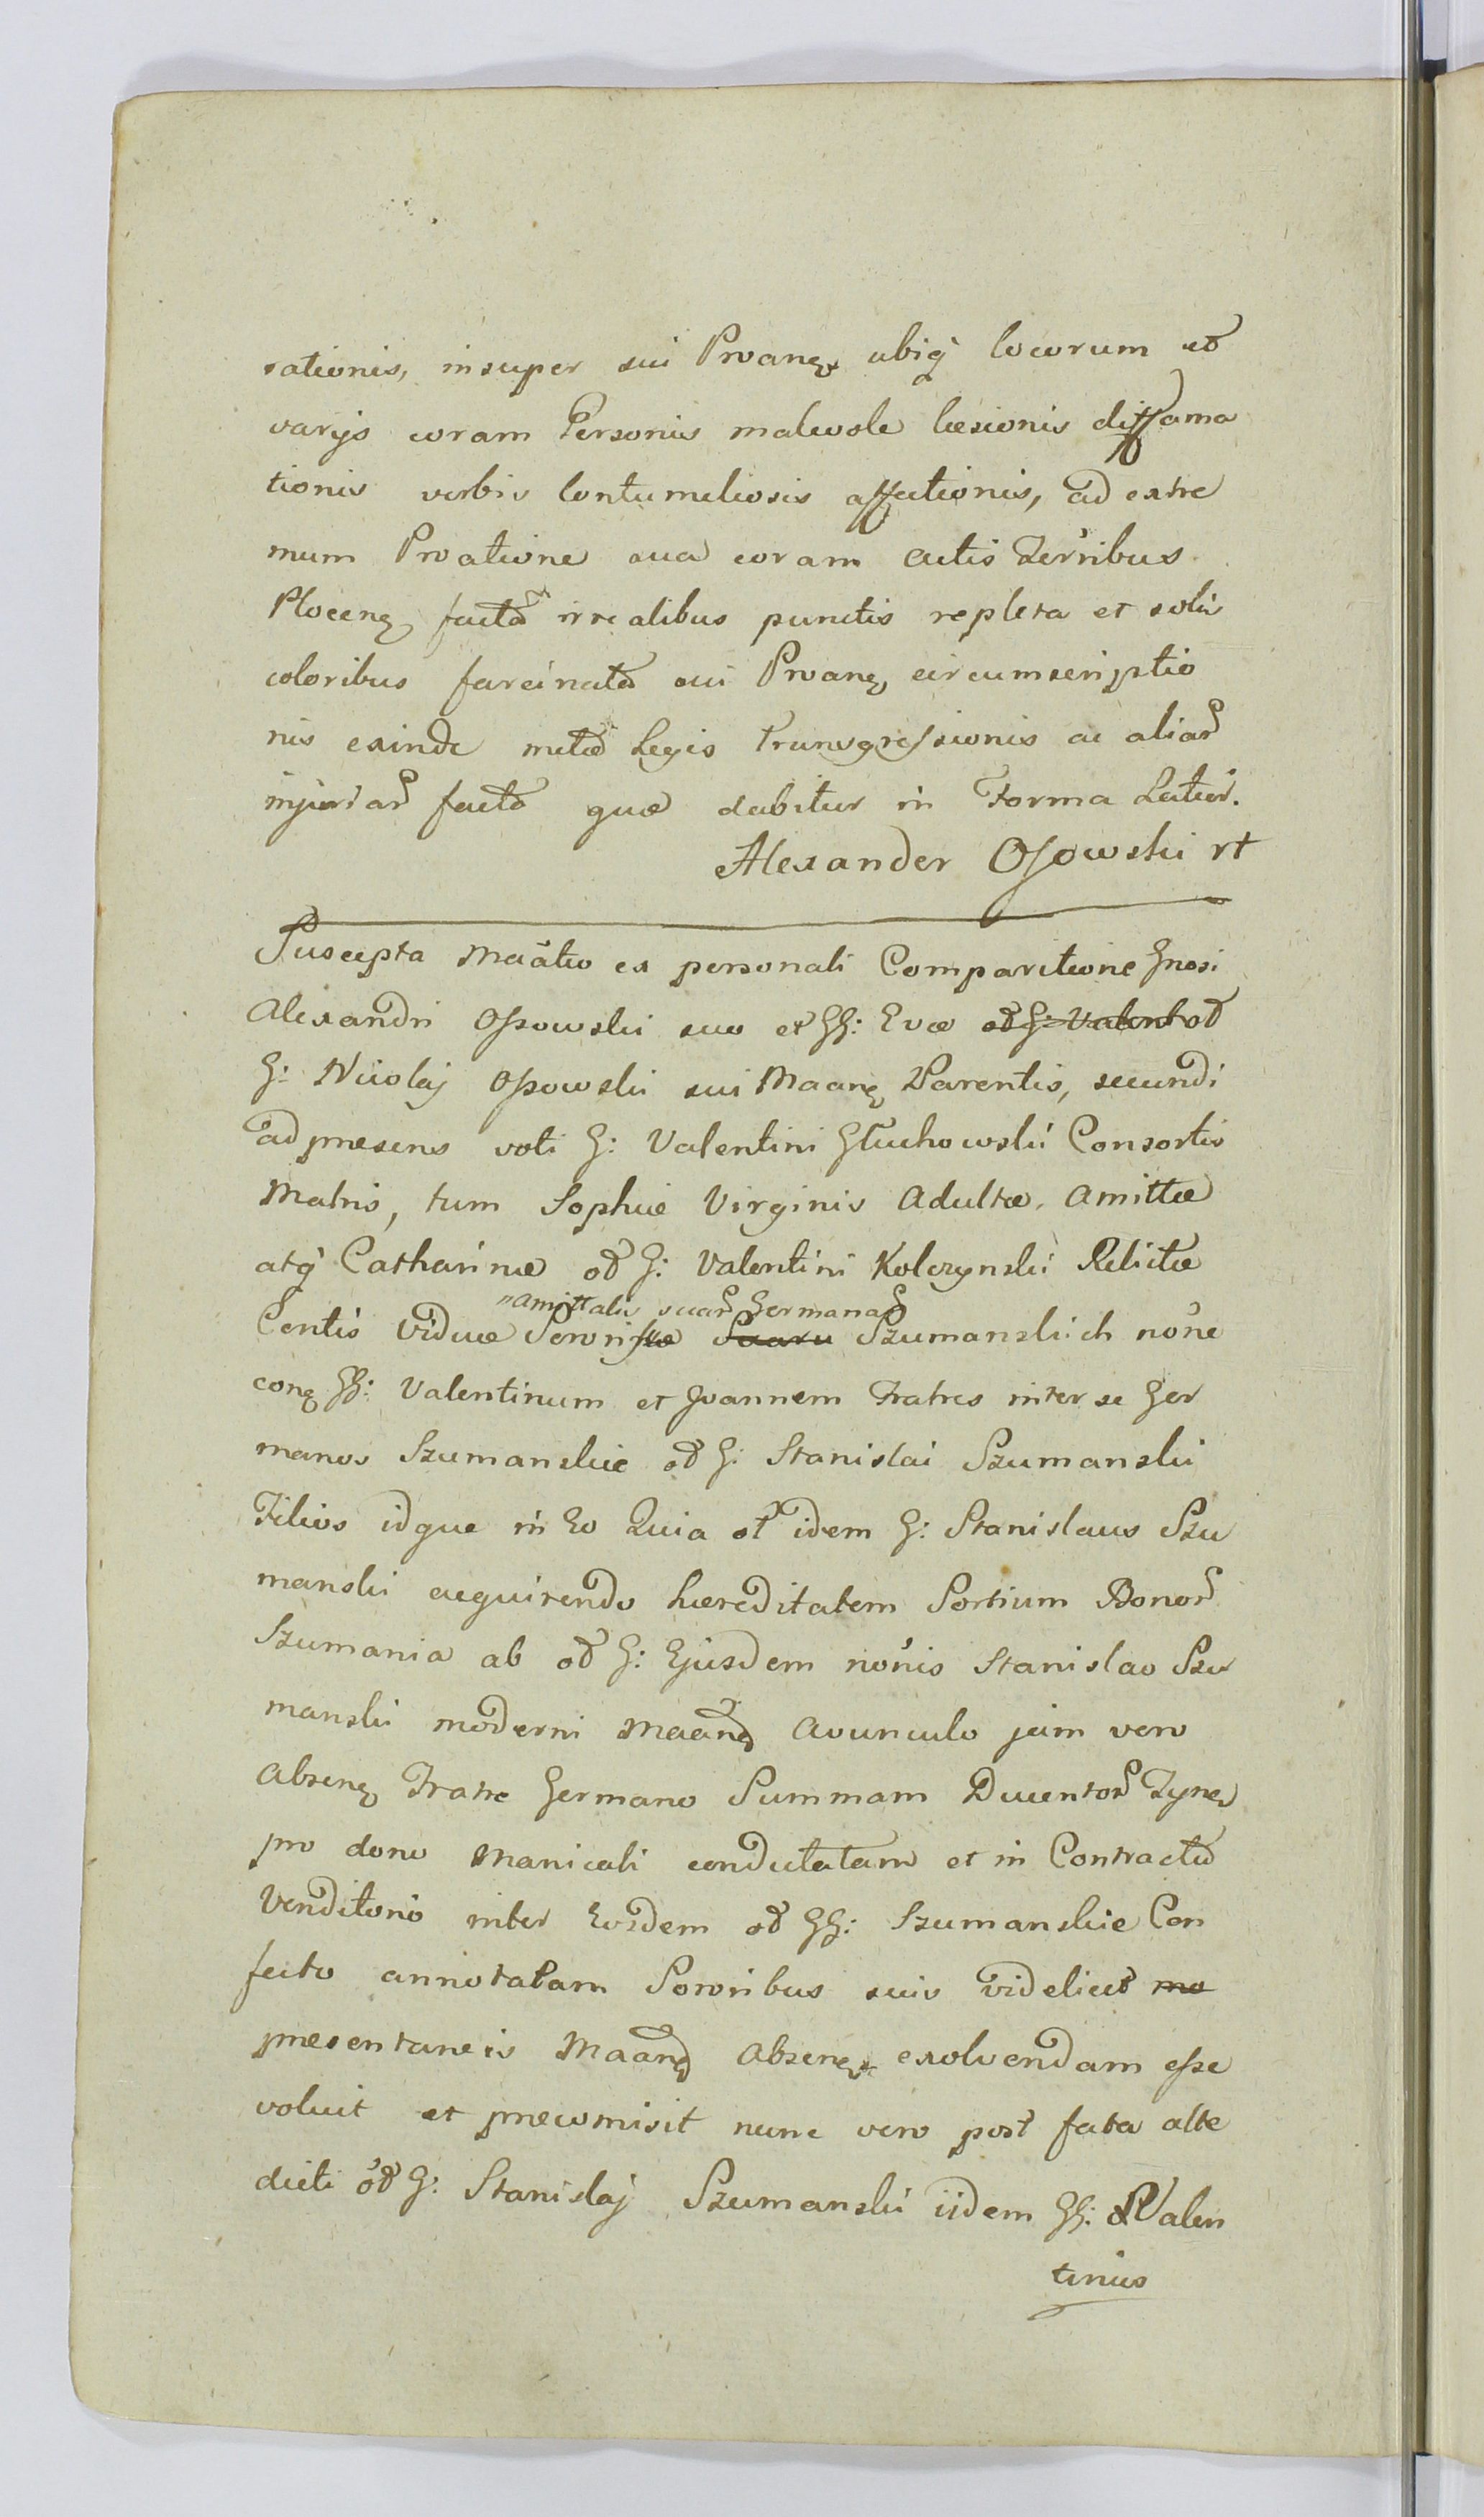 rationis, insuper sui Proang ubiq locorum et
varijs coram Personis malevole læsionis diffama
tionis verbis contumeliosis affectionis, ad extre
mum Proatione sua coram actis Terribus
Ploceng facta irrealibus punctis repleta et solis
coloribus farcinata sui Proang circumscriptio
nis exinde metæ Legis transgressionis ac aliar
injuriar facta quæ dabitur in Forma Latior.
Alexander Osowski rt
Suscepta Maatio ex personali Comparitione Gnosi
Alexandri Ossowski suo et GG: Evæ od G: Valent od
G: Nicolaj Ossowski sui Maang Parentis, secundi
ad præsens voti G: Valentini Głuchowski Consortis
Matris, tum Sophiæ Virginis Adultæ. Amittæ
atq Catharinæ od G: Valentini Kolczynski Relictæ
amittalis suar Germanar
Centis Viduæ Szumanskich noīe
cong GG: Valentinum et Joannem Fratres inter se Ger
manos Szumanskie od G: Stanislai Szumanski
Filios idque in Eo Quia ol idem G: Stanislaus Szu
manski acquirendo hæreditatem Sortium Bonor
Szumania ab od G: Ejusdem noīnis Stanislao Szu
manski moderni Maang Avunculo jam vero
Abseng Fratre Germano Summam Ducentor Tyner
pro dono Manicali condictatam et in Contractu
Venditionis inter Eosdem od GG: Szumanskie Con
fecto annotatam Sororibus suis videlicet mo
præsentaneis Maang Absengr exolvendam esse
voluit et præcomisit nunc vero post fata alte
dicti od G: Stanislaj Szumanski iidem GG: Valen
tinus